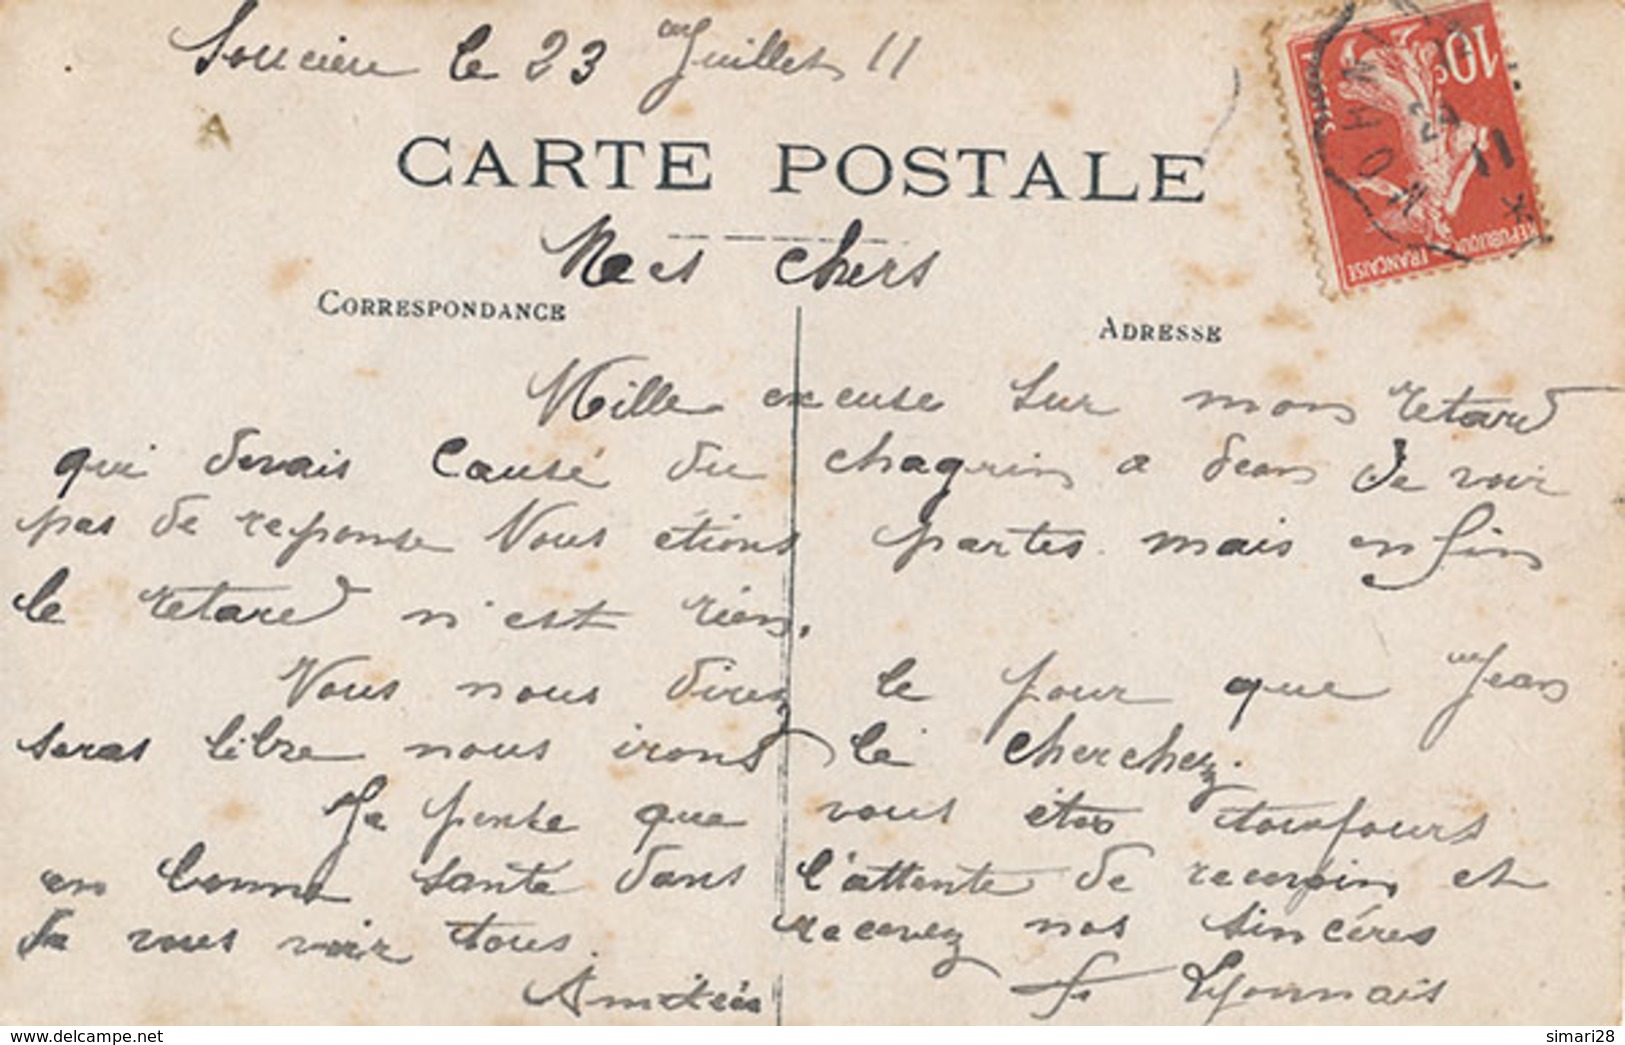 le 23 Juillet 11
CARTE POSTALE
Mes chers
CORRESPONDANCE
ADRESSE
10c
RÉPUBLIQUE FRANÇAISE
23
11
Mille excuse sur mon retard
qui devais causé du chagrin a Jean de voir
pas de reponse Nous étions partes mais enfin
le retard n'est rien.
Vous nous direz le jour que Jean
seras libre nous irons le cherchez.
Je pense que vous êtes toujours
en bonne santé dans l'attente de recevoir et
de vous voir tous. recevez nos sincéres
Amitiés Lyonnais
delcampe.net
simari28